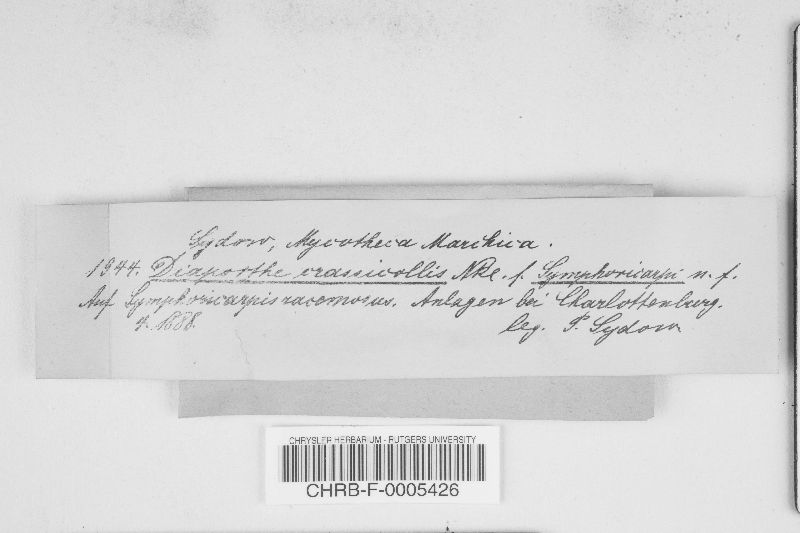 Sydow, Mycotheca Marchica.
1944. Diaporthe crassicollis Nke. f. Symphoricarpi n. f.
Auf Symphoricarpis racemosus. Anlagen bei Charlottenburg.
4. 1888. leg. P. Sydow
CHRYSLER HERBARIUM - RUTGERS UNIVERSITY
CHRB-F-0005426